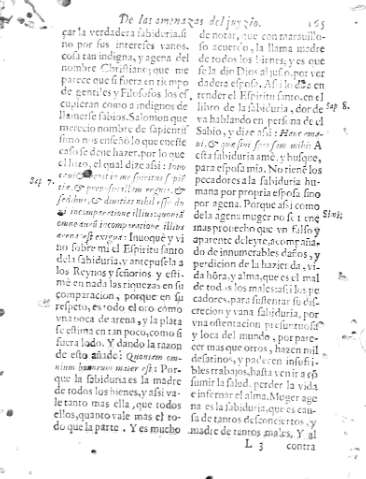 De las amenazas del juyzio. 165
çar la verdadera sabiduria, si
no por sus interesses vanos.
cosa tan indigna, y agena del
nombre Christiano, que me
parece que si fuera en tiempo
de gentiles y Filosofos los es
cupieran como a indignos de
llamarse sabios. Salomon que
merecio nombre de sapientis
simo nos enseñó lo que en este
caso se deue hazer, por lo que
el hizo, el qual dize assi:
Sap 7.
tiæ, & præposui illam regnis, &
sedibus, & diuitias nihil esse du
xi in comparatione illius, quoniã
omne aurũ in comparatione illius,
arena est exigua: Inuoquè y vi
no sobre mi el Espiritu santo
de la sabiduria, y antepusela a
los Reynos y señorios y esti-
mè en nada las riquezas en su
comparacion, porque en su
respeto, es todo el oro como
vna poca de arena, y la plata
se estima en tan poco, como si
fuera lodo. Y dando la razon
de esto añade: Quoniam om-
nium bonorum mater est: Por-
que la sabiduria es la madre
de todos los bienes, y assi va-
le tanto mas ella, que todos
ellos, quanto vale mas el to-
do que la parte. Y es mucho
de notar, que con marauillo-
so acuerdo, la llama madre
de todos los bienes, y es que
se la dio Dios al justo, por ver
dadera esposa. Assi lo da a en
tender el Espiritu santo, en el
libro de la sabiduria, donde
Sap 8.
va hablando en persona de el
Sabio, y dize assi: Hanc ama-
ui, & quæsiui sponsam mihi: A
esta sabiduria amè, y busquè,
para esposa mia. No tienẽ los
pecadores a la sabiduria hu-
mana por propria esposa sino
por agena. Porque assi como
de la agena muger no se tiene
Simil.
mas prouecho que vn falso y
aparente deleyte, acompaña-
do de innumerables daños, y
perdicion de la hazienda, vi-
da hõra, y alma, que es el mal
de todos los males: assi los pe
cadores, para sustentar su dis-
crecion y vana sabiduria, por
vna ostentacion presuntuosa
y loca del mundo, por pare-
cer mas que otros, hazen mil
desatinos, y padecen insufri-
bles trabajos, hasta venir a cõ
sumir la salud, perder la vida
e infernar el alma. Moger age
na es la sabiduria, que es cau-
sa de tantos desconciertos, y
madre de tantos males. Y al
L 3 contra